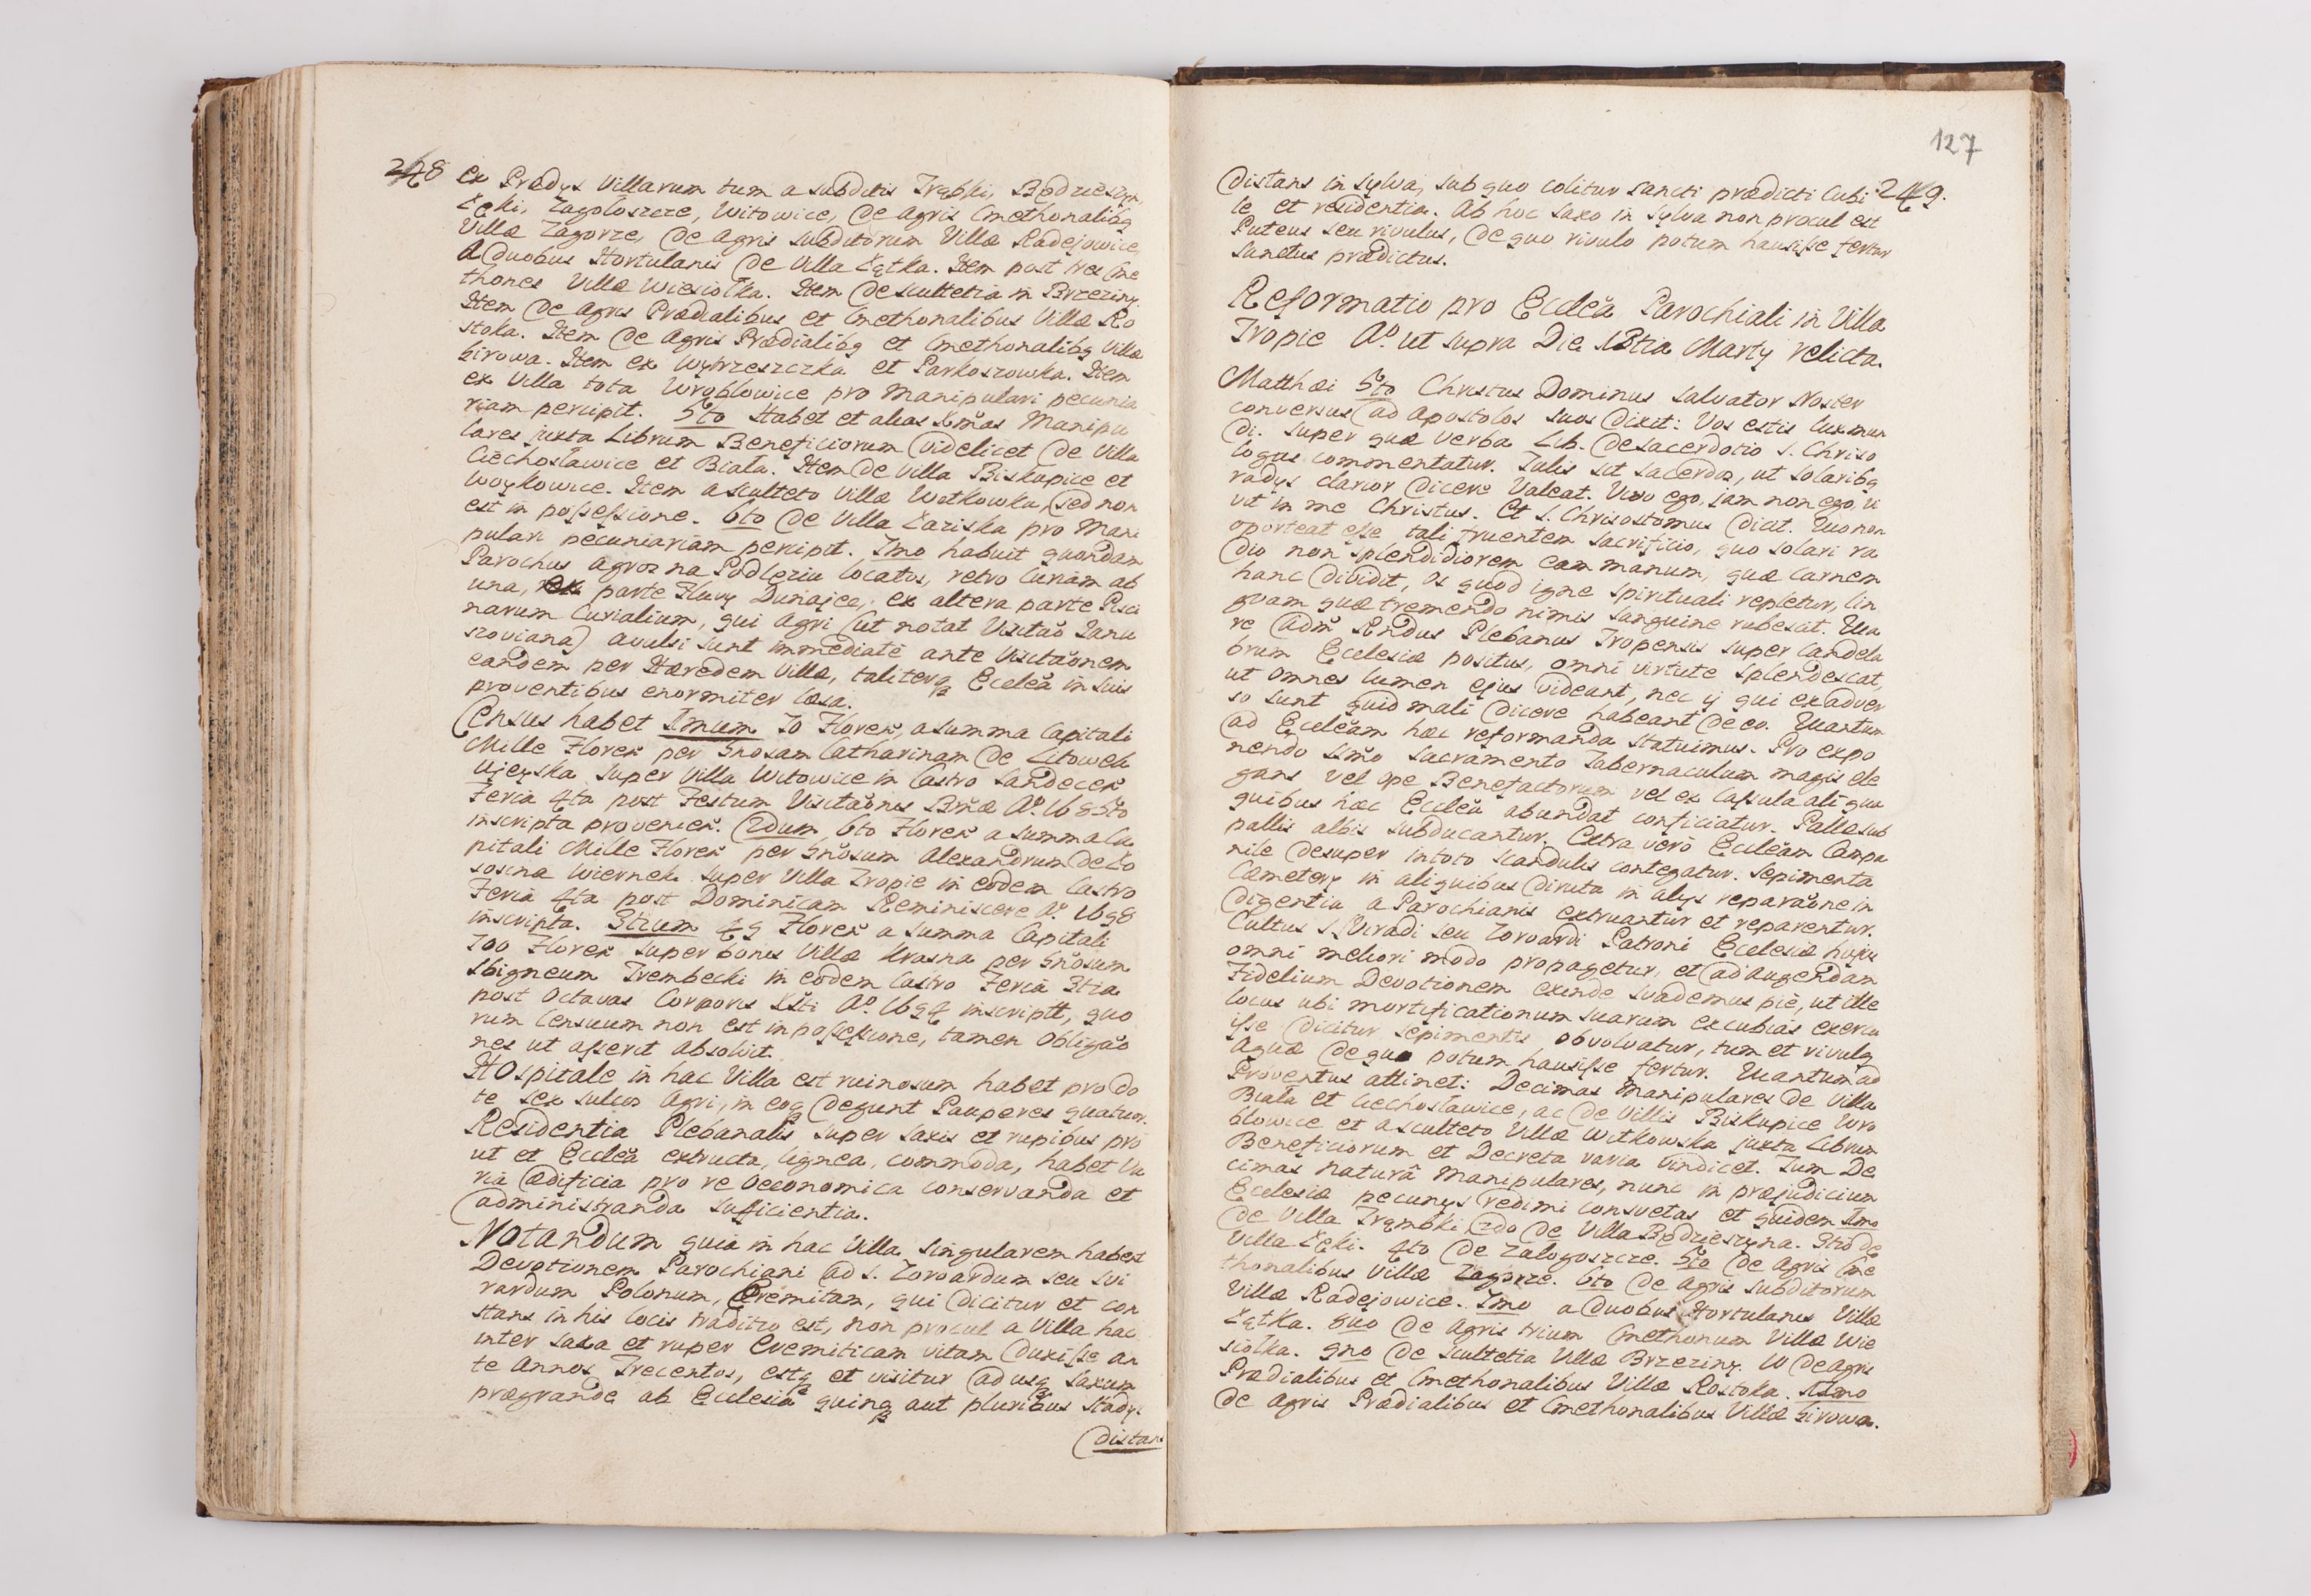 248
ex Prædys Villarum tum a subditis Trąbki, Będzieszyn,
Łęki, Zagoloszcze, Witowice, de Agris Cmethonalibq
Villæ Zagorze, de Agris subditorum Villæ Radejowice,
A duobus Hortulanis de Villa Łętka. Item post tres Cme
thones Villæ Wiesiołka. Item de scultetia in Brzeziny.
Item de Agris Prædialibus et Cmethonalibus Villæ Ro
stoka. Item de Agris Prædialibq et Cmethonalibq Villæ
Girowa. Item ex Wytrzeszczka et Parkoszowka. Item
ex Villa tota Wroblowice pro Manipulari pecunia
riam percipit. 5to Habet et alias Xmas Manipu
lares juxta Librum Beneficiorum videlicet de Villa
Ciechosławice et Biała. Item de Villa Biskupice et
Woykowice. Item a sculteto Villæ Wetkowka, sed non
est in possessione. 6to de Villa Łaziska pro Mani
pulari pecuniariam percipit. 7mo habuit quondam
Parochus Agros na Podłęziu locatos, retro Curiam ab
una, ex parte Fluvy Dunajec, ex altera parte Pisci
narum Curialium, qui Agri (ut notat Visitao Janu
szoviana) avulsi sunt immediate ante Visitaonem
eandem per Hæredem Villæ, taliterq Ecclea in suis
proventibus enormiter læsa.
Census habet 1mum 70 Floren, a summa Capitali
Mille Floren per Gnosam Catharinam de Litowek
Ujeyska super Villa Witowice in Castro Sandecen
Feria 4ta post Festum Visitaonis Bmæ Ao. 1685to
inscripta provenien. 2dum 6to Floren a summa Ca
pitali Mille Floren per Gnosum Alexandrum de Ło
sosina Wiernek super Villa Tropie in eodem Castro
Feria 4ta post Dominicam Reminiscere Ao. 1698
inscripta. 3tium 49 Floren a summa Capitali
700 Floren super bonis Villæ Krasna per Gnosum
Sbigneum Trembecki in eodem Castro Feria 3tia
post Octavas Corporis Xsti Ao. 1694 inscriptt, quo
rum Censuum non est in possessione, tamen Obligao
nes ut asserit absolvit.
Hospitale in hac Villa est ruinosum habet pro do
te sex sulcos Agri, in eoq degunt Pauperes quatuor.
Residentia Plebanalis super saxis et rupibus pro
ut et Ecclea extructa, lignea, commoda, habet va
ria ædificia pro re oeconomica conservanda et
administranda sufficientia.
Notandum quia in hac Villa singularem habent
Devotionem Parochiani ad S. Zorardum seu Svi
rardum Polonum, Eremitam, qui dicitur et con
stans in his locis traditio est, non procul a Villa hac
inter saxa et rupes Eremiticam vitam duxisse an
te Annos Trecentos, estq et visitur ad usq saxum
prægrande ab Ecclesia quinq aut pluribus stadys
distans
127
249.
distans in sylva, sub quo colitur sancti prædicti Cubi
le et residentia. Ab hoc saxo in sylva non procul est
Puteus seu rivulus, de quo rivulo potum hausisse fertur
sanctus prædictus.
Reformatio pro Ecclea Parochiali in Villa
Tropie Ao. ut supra Die 13tia Marty relicta.
Matthæi 5to Christus Dominus salvator Noster
conversus ad Apostolos suos dixit: Vos estis lux mun
di. super quæ verba Lib. de sacerdotio S. Chriso
logus commentatur. Talis sit sacerdos, ut solaribq
radys clarior dicere valeat. Vivo ego, jam non ego, vi
vit in me Christus. Et S. Chrisostomus dicit. Quo non
oporteat esse tali fruentem sacrificio, quo solari ra
dio non splendidiorem eam manum, quæ carnem
hanc dividit, os quod igne spirituali repletur, lin
guam quæ tremendo nimis sanguine rubescit. Qua
re Adm Rndus Plebanus Tropensis super candela
brum Ecclesiæ positus, omni virtute splendescat,
ut omnes lumen ejus videant, nec ij qui ex adver
so sunt quid mali dicere habeant de eo. Quantum
ad Eccleam hæc reformanda statuimus. Pro expo
nendo ssmo sacramento Tabernaculum magis ele
gans vel ope Benefactorum vel ex Capsula aliqua
quibus hæc Ecclea abundat conficiatur. Pallæ sub
pallis albis subducantur. Extra vero Eccleam Campa
nile desuper in toto scandulis contegatur. Sepimenta
Cæmetery in aliquibus diruta in alys reparaone in
digentia a Parochianis extruantur et reparentur.
Cultus S. Viradi seu Zorardi Patroni Ecclesiæ hujus
omni meliori modo propagetur, et ad augendam
Fidelium Devotionem exinde suademus pie, ut ille
locus ubi mortificationum suarum excubias exercu
isse dicitur sepimentis obvolvatur, tum et rivulq
Aquæ de quo potum hausisse fertur. Quantum ad
Proventus attinet: Decimas Manipulares de Villa
Biała et Ciechosławice, ac de Villis Biskupice Wro
blowice et a sculteto Villæ Witkowska juxta Librum
Beneficiorum et Decreta varia vindicet. Tum De
cimas naturâ Manipulares, nunc in præjudicium
Ecclesiæ pecunys redimi consvetas et quidem 1mo
de Villa Trąmbki 2do de Villa Będzieszyna. 3tio de
Villa Łęki. 4to de Zalogoszcze. 5to de Agris Cme
thonalibus Villæ Zagorze. 6to de Agris subditorum
Villæ Radejowice. 7mo a duobus Hortulanis Villæ
Łętka. 8vo de Agris trium Cmethonum Villæ Wie
siołka. 9no de scultetia Villæ Brzeziny. 10 de Agris
Prædialibus et Cmethonalibus Villæ Rostoka. 11mo
de Agris Prædialibus et Cmethonalibus Villæ Girowa.